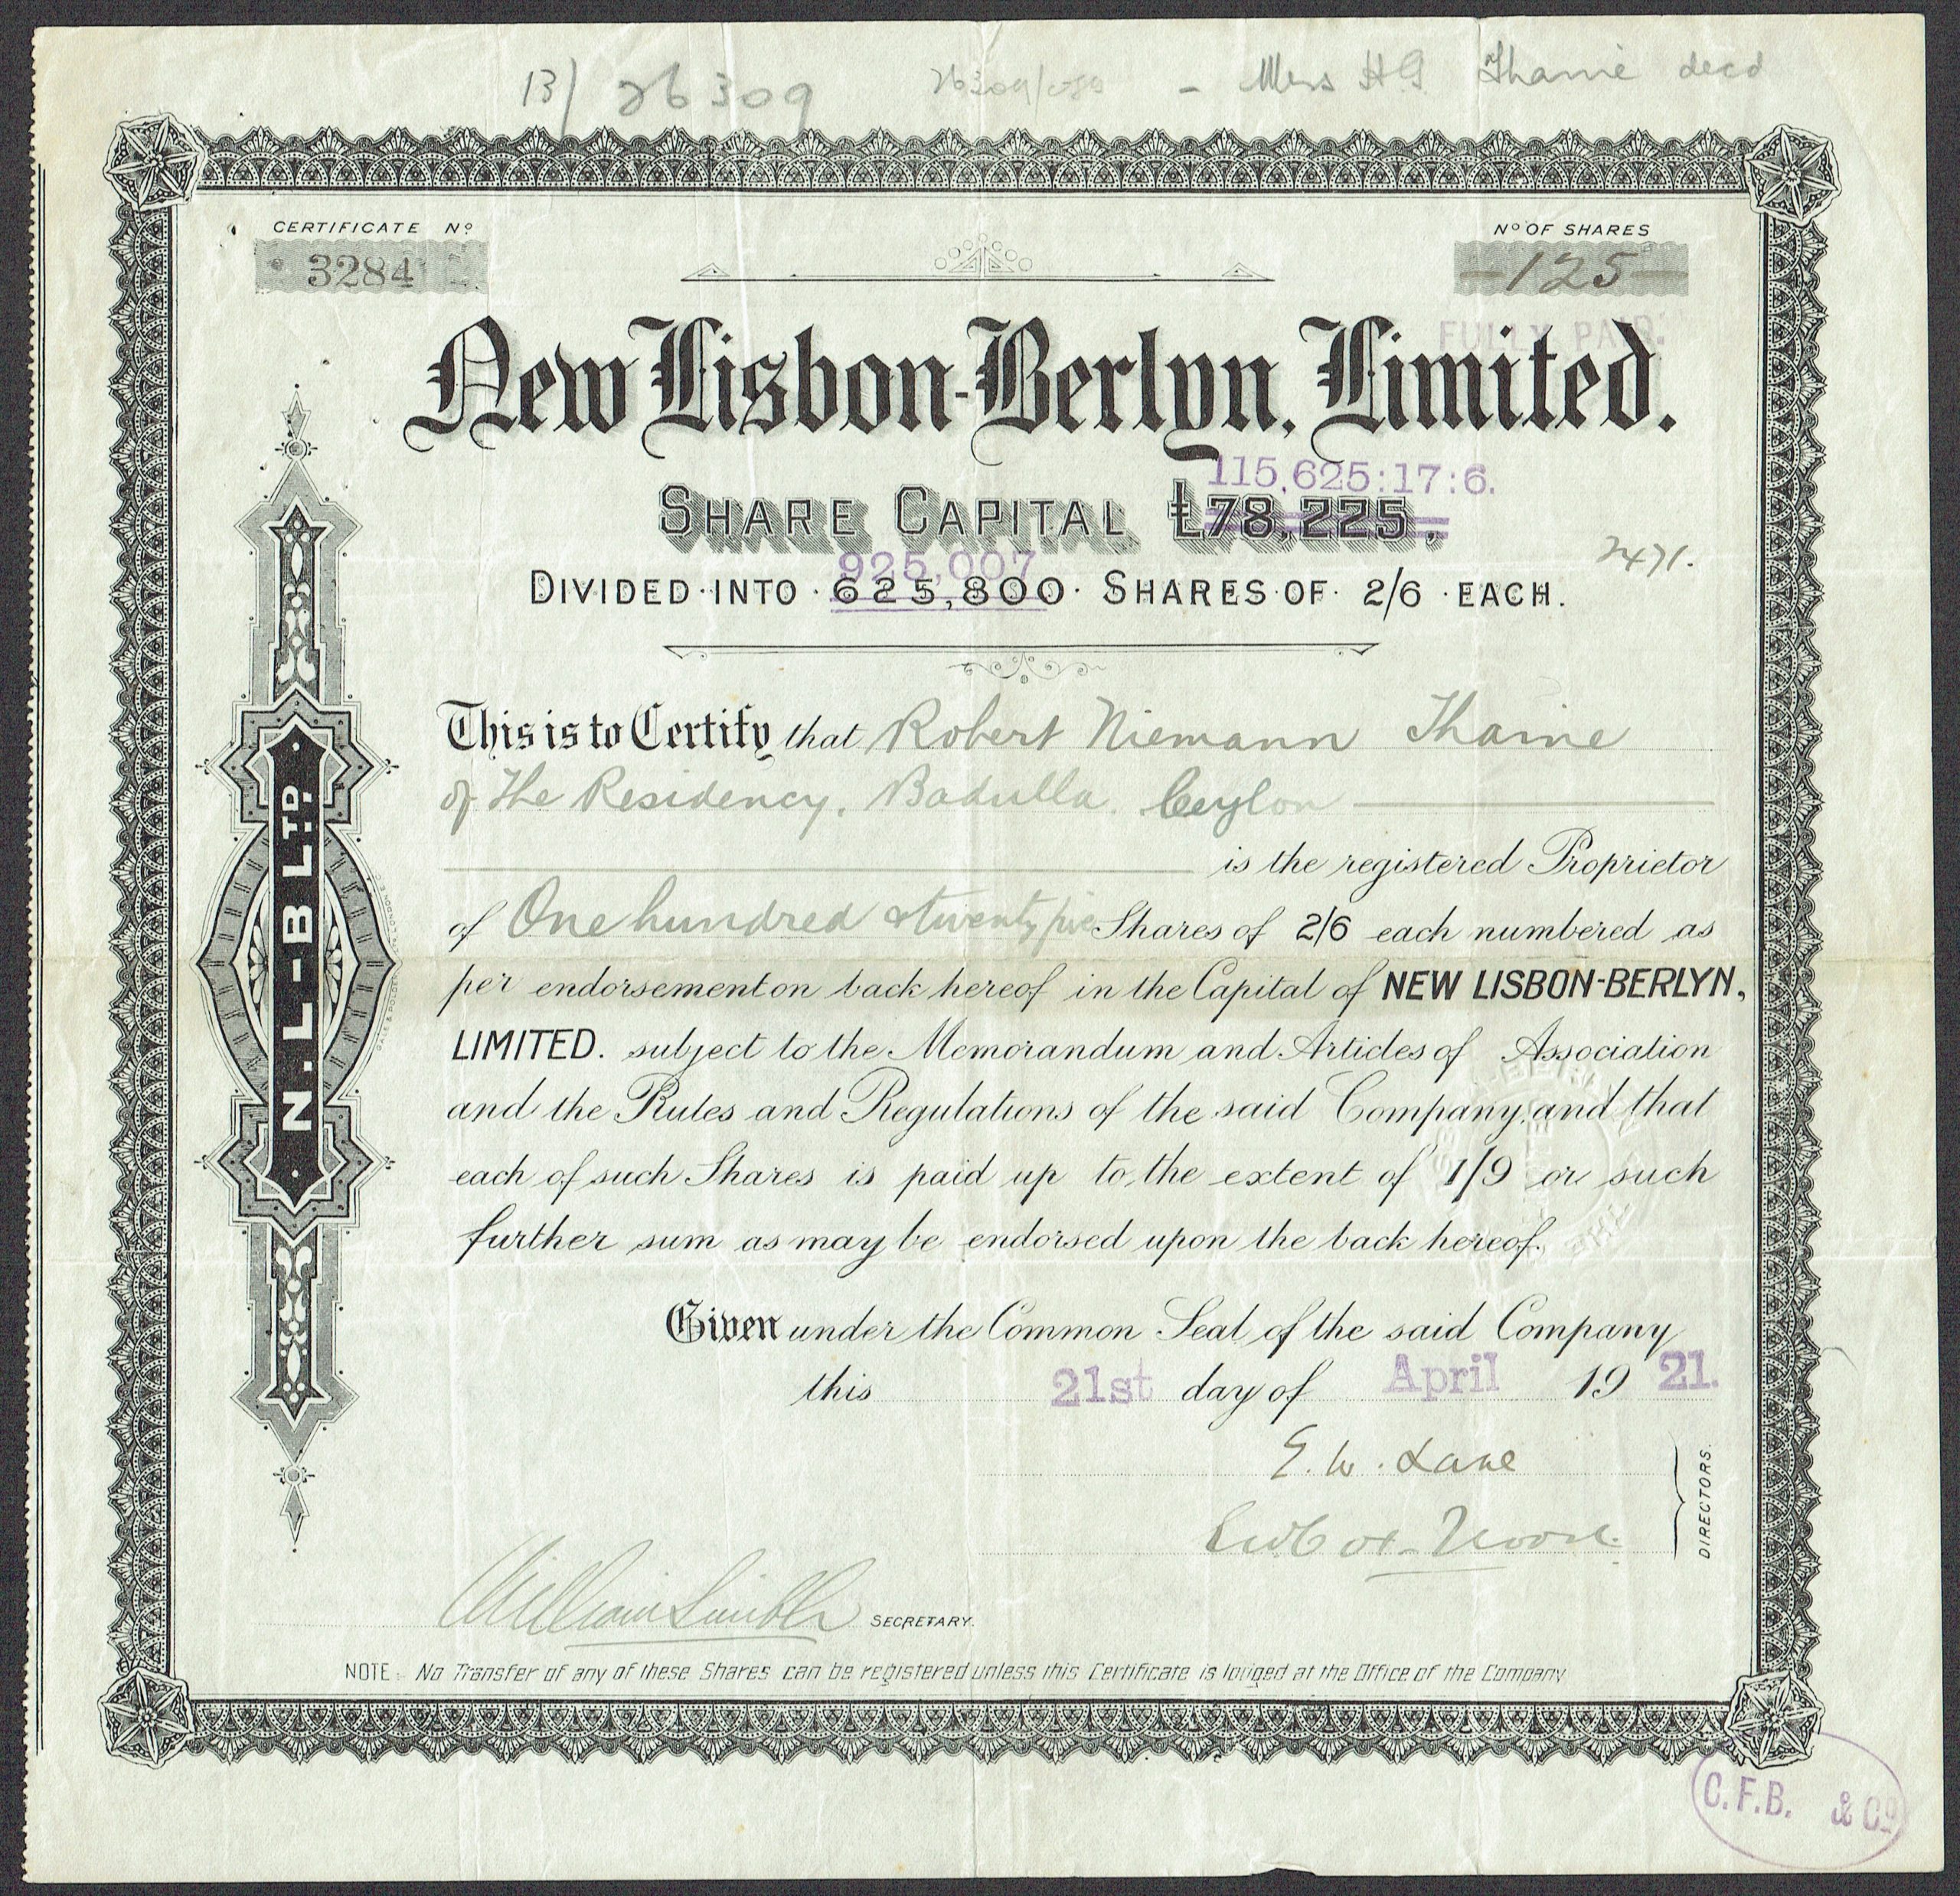 13/ 26309 - Mrs H G Thaine decd
CERTIFICATE Nº
3284
Nº OF SHARES
-125-
FULLY PAID.
New Lisbon-Berlyn, Limited.
115,625:17:6.
SHARE CAPITAL £78,225,
2471.
925,007
DIVIDED INTO 625,800 SHARES OF 2/6 EACH.
This is to Certify that Robert Niemann Thaine
of The Residency, Badulla. Ceylon
is the registered Proprietor
of One hundred & twenty five Shares of 2/6 each numbered as
per endorsement on back hereof in the Capital of NEW LISBON-BERLYN,
LIMITED. subject to the Memorandum and Articles of Association
and the Rules and Regulations of the said Company, and that
each of such Shares is paid up to the extent of 1/9 or such
further sum as may be endorsed upon the back hereof.
Given under the Common Seal of the said Company
this 21st day of April 1921.
E. W. Lane
DIRECTORS.
William Smith SECRETARY.
NOTE: No Transfer of any of these Shares can be registered unless this Certificate is lodged at the Office of the Company
N.L-B LTD.
C.F.B. & Cº